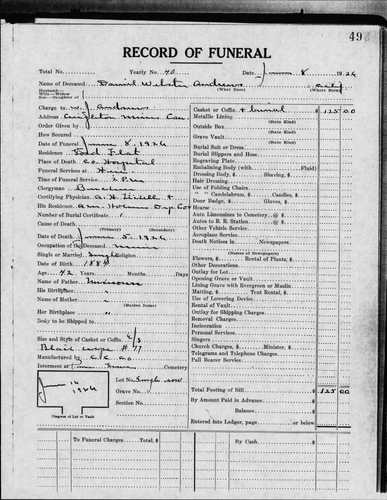 49
RECORD OF FUNERAL
Total No. Yearly No. 40 Date 8 1926
Name of Deceased Daniel Webster Andrews
Husband—
Wife—Widow
Son—Daughter of
(What Race) (Where Born)
Charge to W. J. Andrews
Address
Order Given by
How Secured
Date of Funeral 8, 1926
Residence
Place of Death Co. Hospital
Funeral Services at
Time of Funeral Service
Clergyman
Certifying Physician
His Residence
Number of Burial Certificate
Cause of Death
(Primary) (Secondary)
Date of Death 5, 1926
Occupation of the Deceased
Single or Married Single Religion
Date of Birth 1884
Age 42 Years Months Days
Name of Father
His Birthplace
Name of Mother
Her Birthplace
Body to be Shipped
Size and Style of Casket or Coffin 6/3
Manufactured by
Interment at Cemetery
Lot No. Single row
Grave No.
Section No.
1926
Diagram of Lot or Vault
Casket or Coffin + burial $ 125 00
Metallic Lining
(State Kind)
Outside Box
(State Kind)
Grave Vault
(State Kind)
Burial Suit or Dress
Burial Slippers and Hose
Engraving Plate
Embalming Body (with Fluid)
Dressing Body, $ Shaving, $
Hair Dressing
Use of Folding Chairs
" " Candelabrum, $ Candles, $
Door Badge, $ Gloves, $
Hearse
Auto Limousines to Cemetery @ $
Autos to R. R. Station @ $
Other Vehicle Service
Aeroplane Service
Death Notices in Newspapers
(Names of Newspapers)
Flowers, $ Rental of Plants, $
Other Decorations
Outlay for Lot
Opening Grave or Vault
Lining Grave with Evergreen or Muslin
Matting, $ Tent Rental, $
Use of Lowering Device
Rental of Vault
Outlay for Shipping Charges
Removal Charges
Incineration
Personal Services
Singers
Church Charges, $ Minister, $
Telegrams and Telephone Charges
Pall Bearer Service
Total Footing of Bill $ 125 00
By Amount Paid in Advance
Balance
Entered into Ledger, page or below
To Funeral Charges Total By Cash